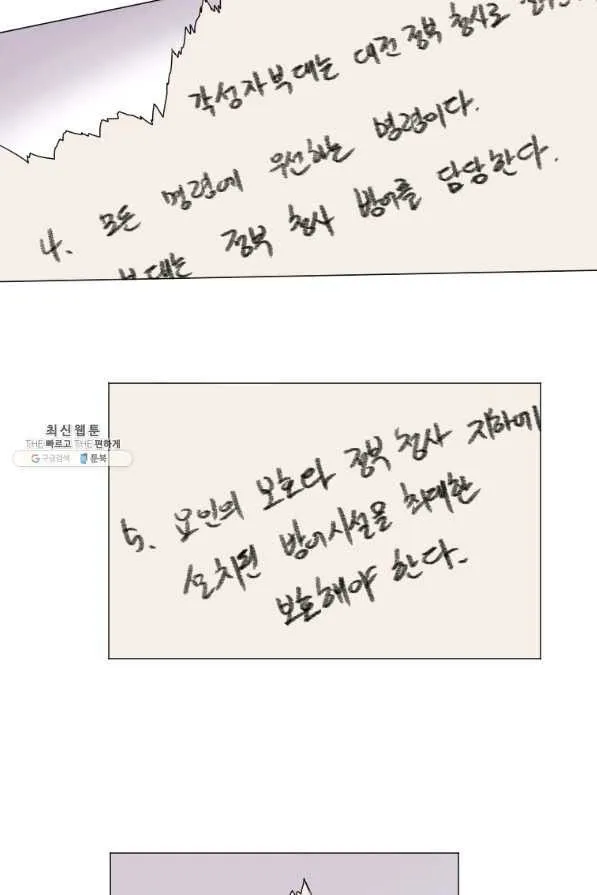 각성자부대는 대전 정부 청사로
4. 모든 명령에 우선하는 명령이다.
부대는 정부 청사 방어를 담당한다.
최신웹툰
THE 빠르고 THE 편하게
구글검색 툰북
5. 요인의 보호와 정부 청사 지하에
설치된 방어시설을 최대한
보호해야 한다.